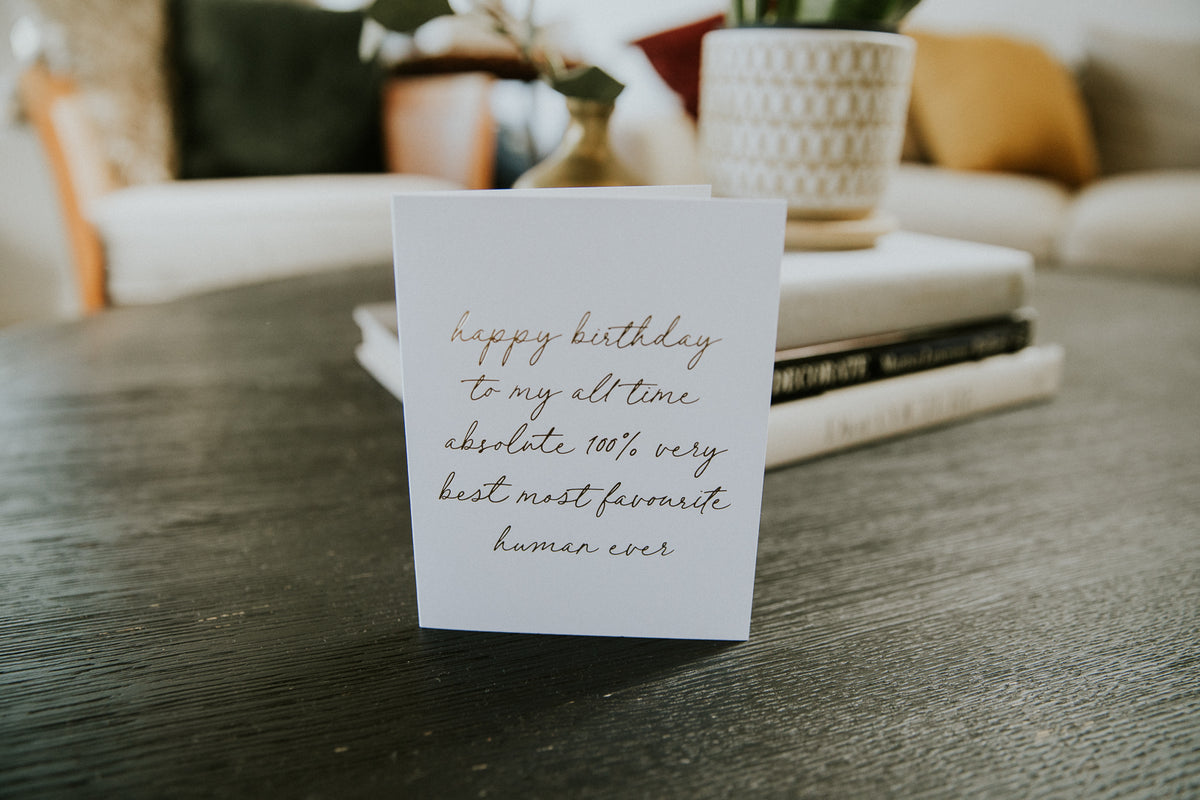 happy birthday
to my all time
absolute 100% very
best most favourite
human ever
DECORATE